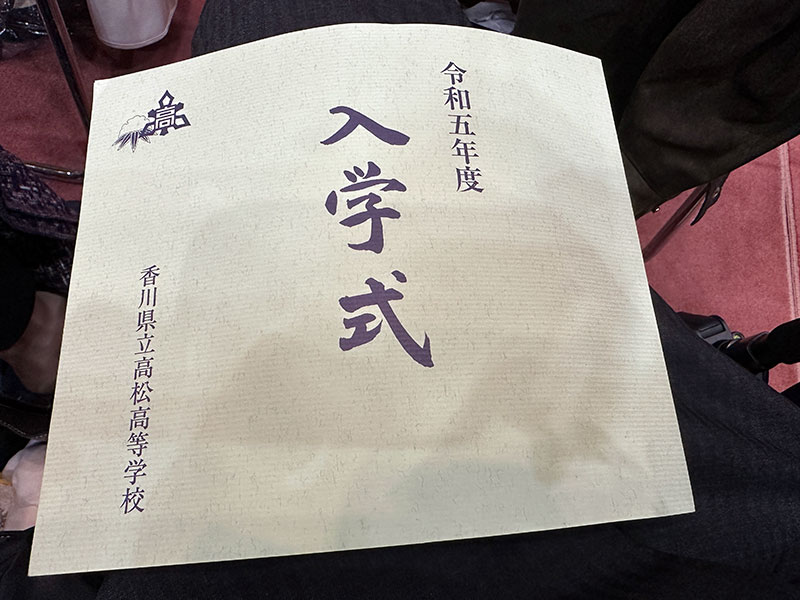 令和五年度
入学式
高
香川県立高松高等学校